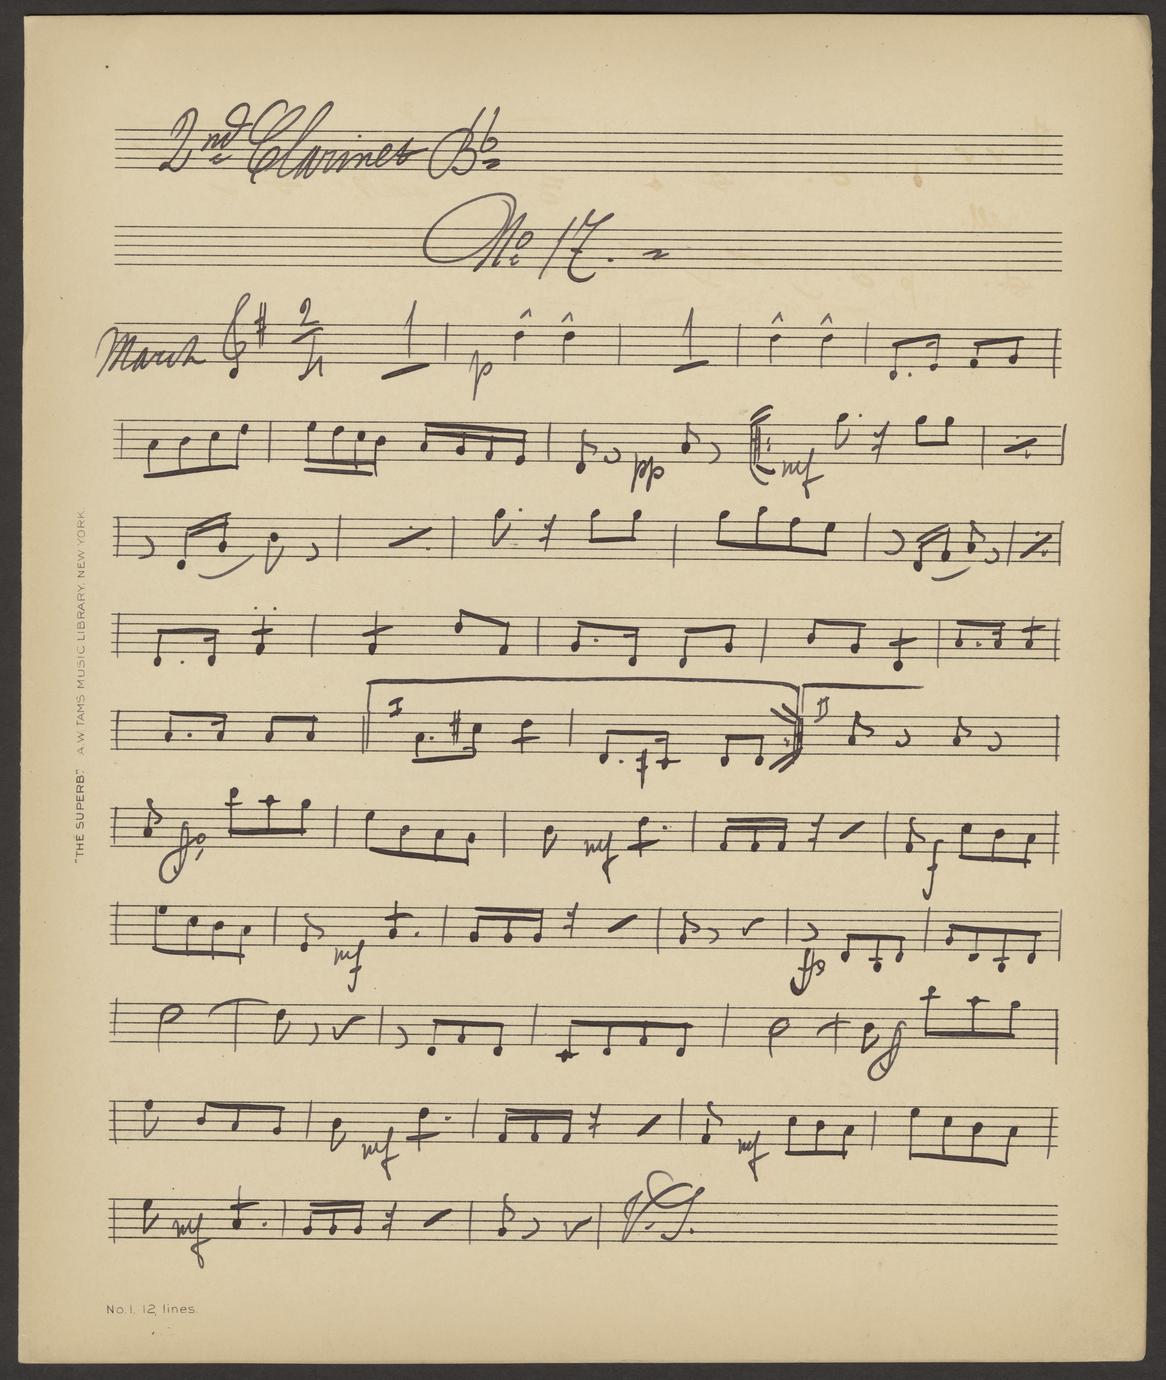 2nd Clarinet B♭
No 17.
March 2/4 1 p 1
pp mf
I II
fp mf f
mf fp
f
mf mf
mf V.S.
"THE SUPERB" A.W. TAMS MUSIC LIBRARY, NEW YORK.
No. 1. 12 lines.